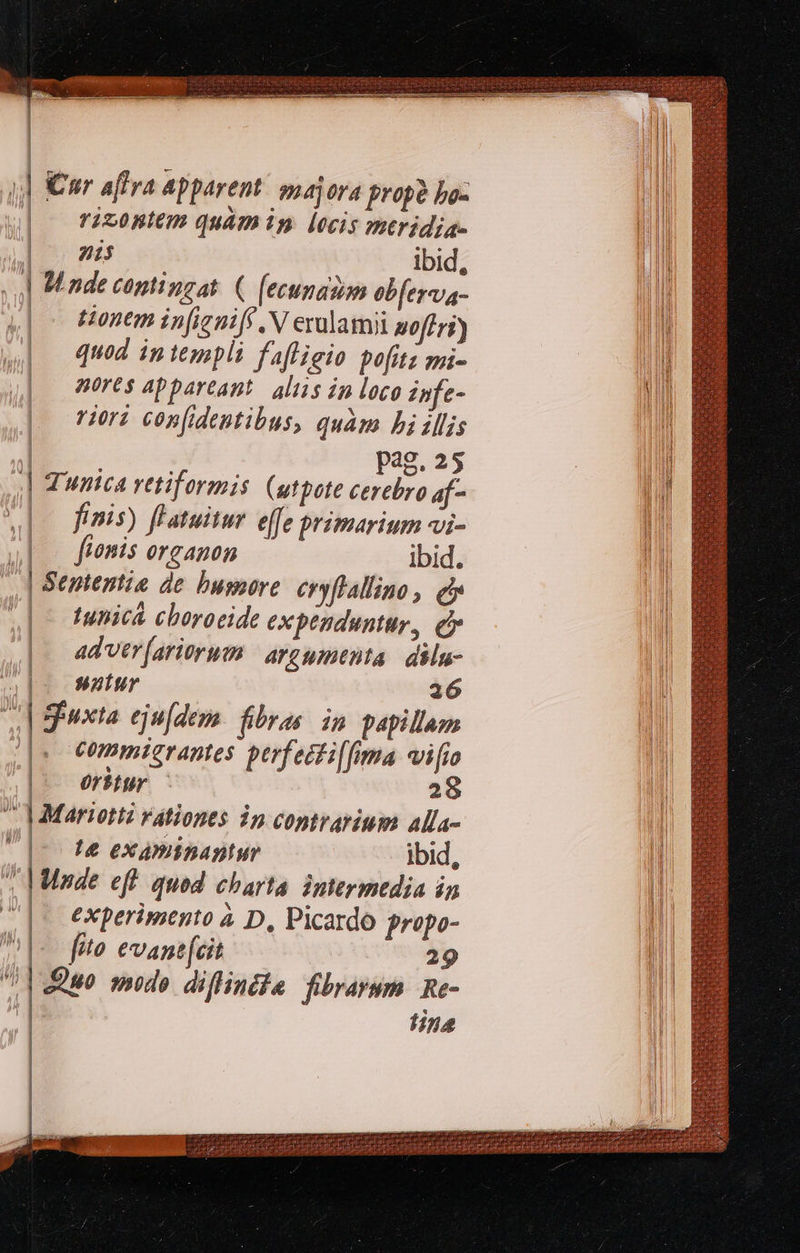 Cur aſtra apparent majora propè ho-
rizontem quàm in locis meridia-
nis ibid,
Unde contingat ( ſecundùm obſerva-
tionem inſigniſſ, Verulamii noſtri)
quod in templi faſtigio poſiti mi-
nores appareant aliis in loco infe-
riori conſidentibus, quàm hi illis
pag. 25
Tunica retiformis (utpote cerebro af-
finis) ſtatuitur eſſe primarium vi-
ſionis organon ibid.
Sententiæ de humore cryſtallino, &
tunicâ choroeide expenduntur, &
adverſariorum argumenta dilu-
untur 26
Juxta ejuſdem fibras in papillam
commigrantes perfectiſſima viſio
oritur 28
Mariotti rationes in contrarium alla-
tæ examinantur ibid,
Unde eſt quod charta intermedia in
experimento à D, Picardo propo-
ſito evaneſcit 29
Quo modo diſtinctæ fibrarum Re-
tinæ